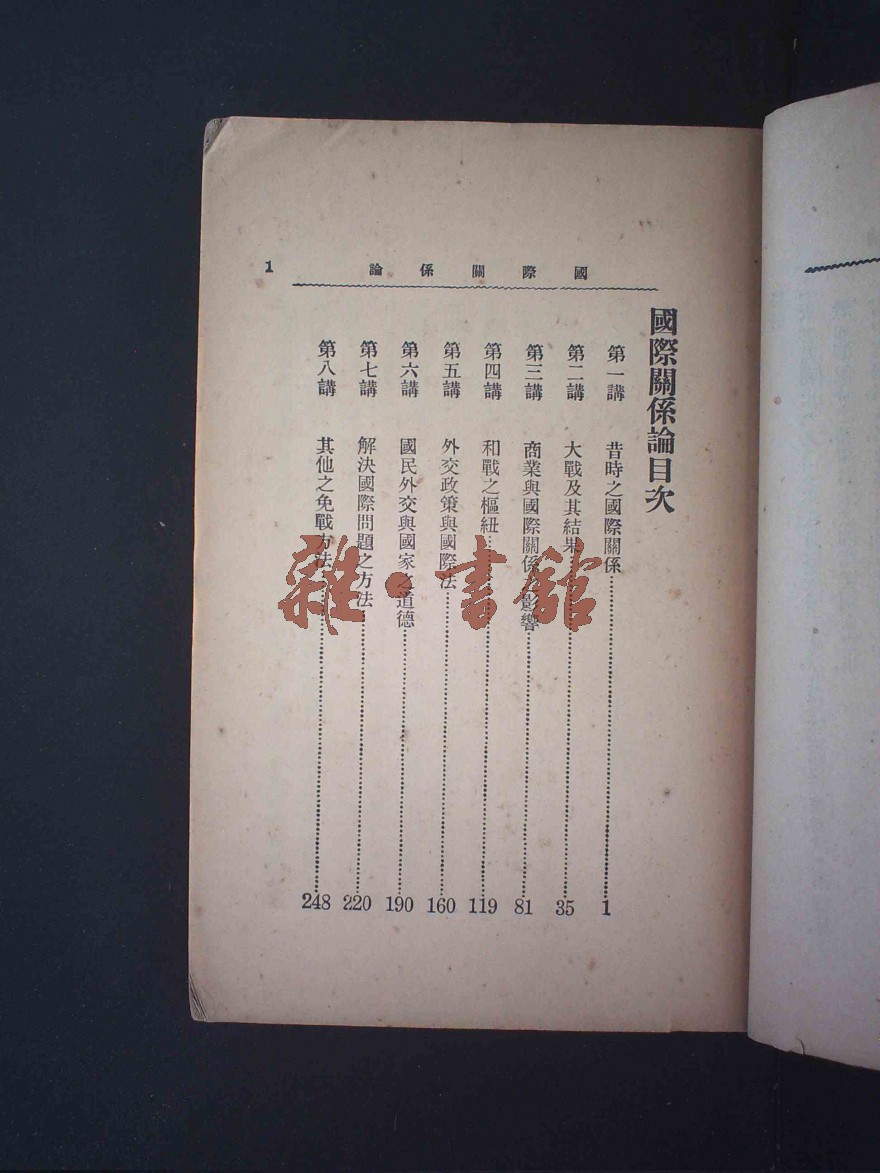 國際關係論
1
國際關係論目次
第一講 昔時之國際關係……1
第二講 大戰及其結果……35
第三講 商業與國際關係之影響……81
第四講 和戰之樞紐……119
第五講 外交政策與國際法……160
第六講 國民外交與國家之道德……190
第七講 解決國際問題之方法……220
第八講 其他之免戰方法……248
雜·書館